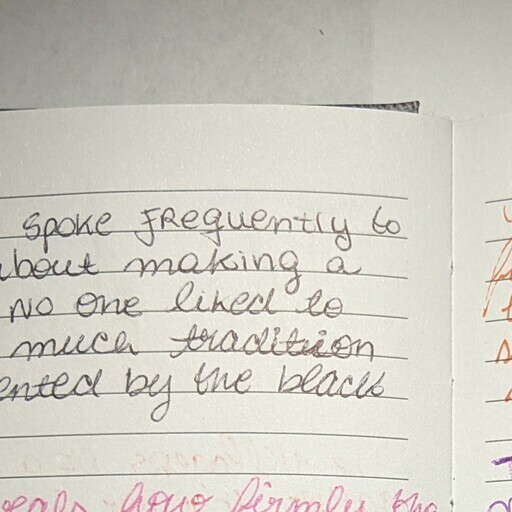 spoke frequently to
about making a
No one liked to
much tradition
ented by the blacks
firmly the